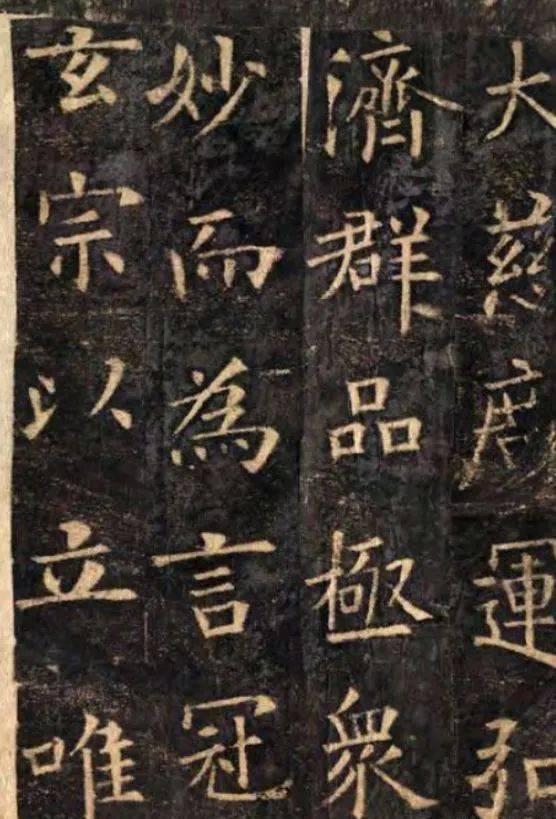 大慈度運弘
濟群品極衆
妙而為言冠
玄宗以立唯